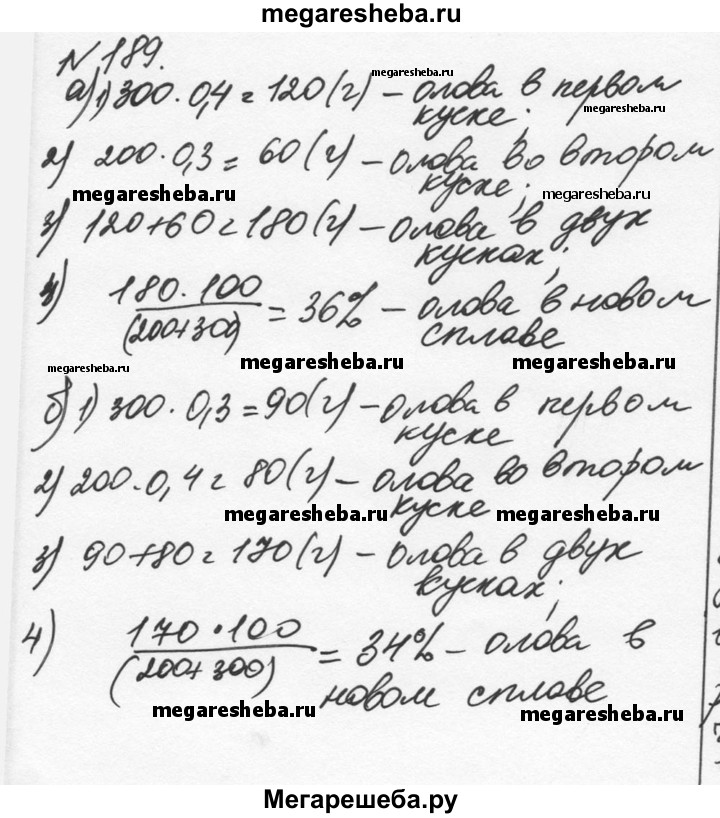 megaresheba.ru
N 189.
megaresheba.ru
а) 1) 300 · 0,4 = 120 (г) – олова в первом
куске;
megaresheba.ru
2) 200 · 0,3 = 60 (г) – олова во втором
куске;
megaresheba.ru
megaresheba.ru
3) 120 + 60 = 180 (г) – олова в двух
кусках;
4) 180 · 100 / (200 + 300) = 36% – олова в новом
сплаве
megaresheba.ru
megaresheba.ru
megaresheba.ru
б) 1) 300 · 0,3 = 90 (г) – олова в первом
куске
2) 200 · 0,4 = 80 (г) – олова во втором
куске
megaresheba.ru
megaresheba.ru
3) 90 + 80 = 170 (г) – олова в двух
кусках;
4) 170 · 100 / (200 + 300) = 34% – олова в
новом сплаве
megaresheba.ru
megaresheba.ru
Мегарешеба.ру